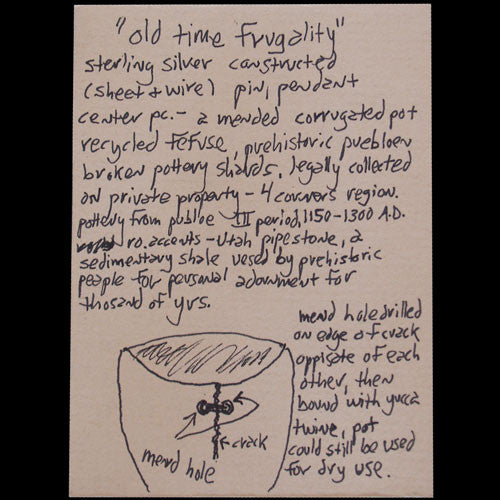 "old time frugality"
sterling silver constructed
(sheet + wire) pin, pendant
center pc. - a mended corrugated pot
recycled refuse, prehistoric puebloen
broken pottery shards. legally collected
on private property - 4 corners region.
pottery from publoe III period, 1150-1300 A.D.
ro. accents - Utah pipestone, a
sedimentary shale used by prehistoric
people for personal adornment for
thosand of yrs.
mend hole drilled
on edge of crack
oppisate of each
other, then
bound with yucca
twine, pot
could still be used
for dry use.
crack
mend hole